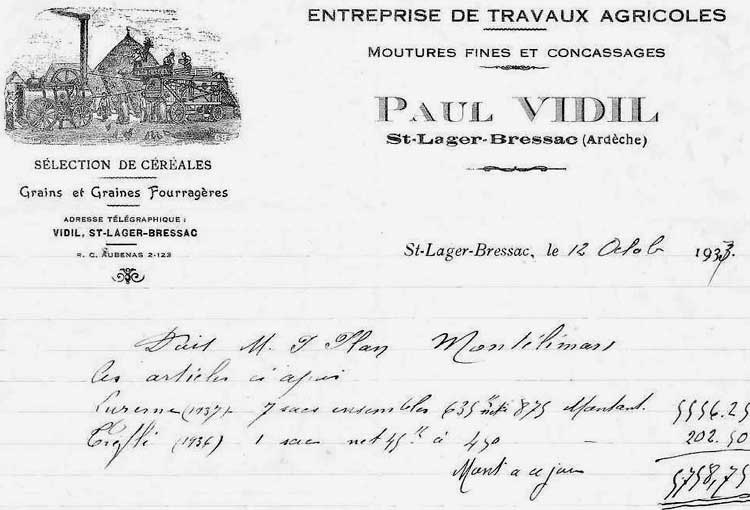 ENTREPRISE DE TRAVAUX AGRICOLES
MOUTURES FINES ET CONCASSAGES
PAUL VIDIL
St-Lager-Bressac (Ardèche)
SÉLECTION DE CÉRÉALES
Grains et Graines Fourragères
ADRESSE TÉLÉGRAPHIQUE :
VIDIL, ST-LAGER-BRESSAC
R. C. AUBENAS 2-123
St-Lager-Bressac, le 12 Octob 193
Doit M. J Plan Montélimar
Les articles ci après
Luzerne (1937) 7 sacs ensembles 635k nets 875 Montant. 5556.25
Trèfle (1936) 1 sac net 45k à 450 — 202.50
Mont a ce jour 5758,75